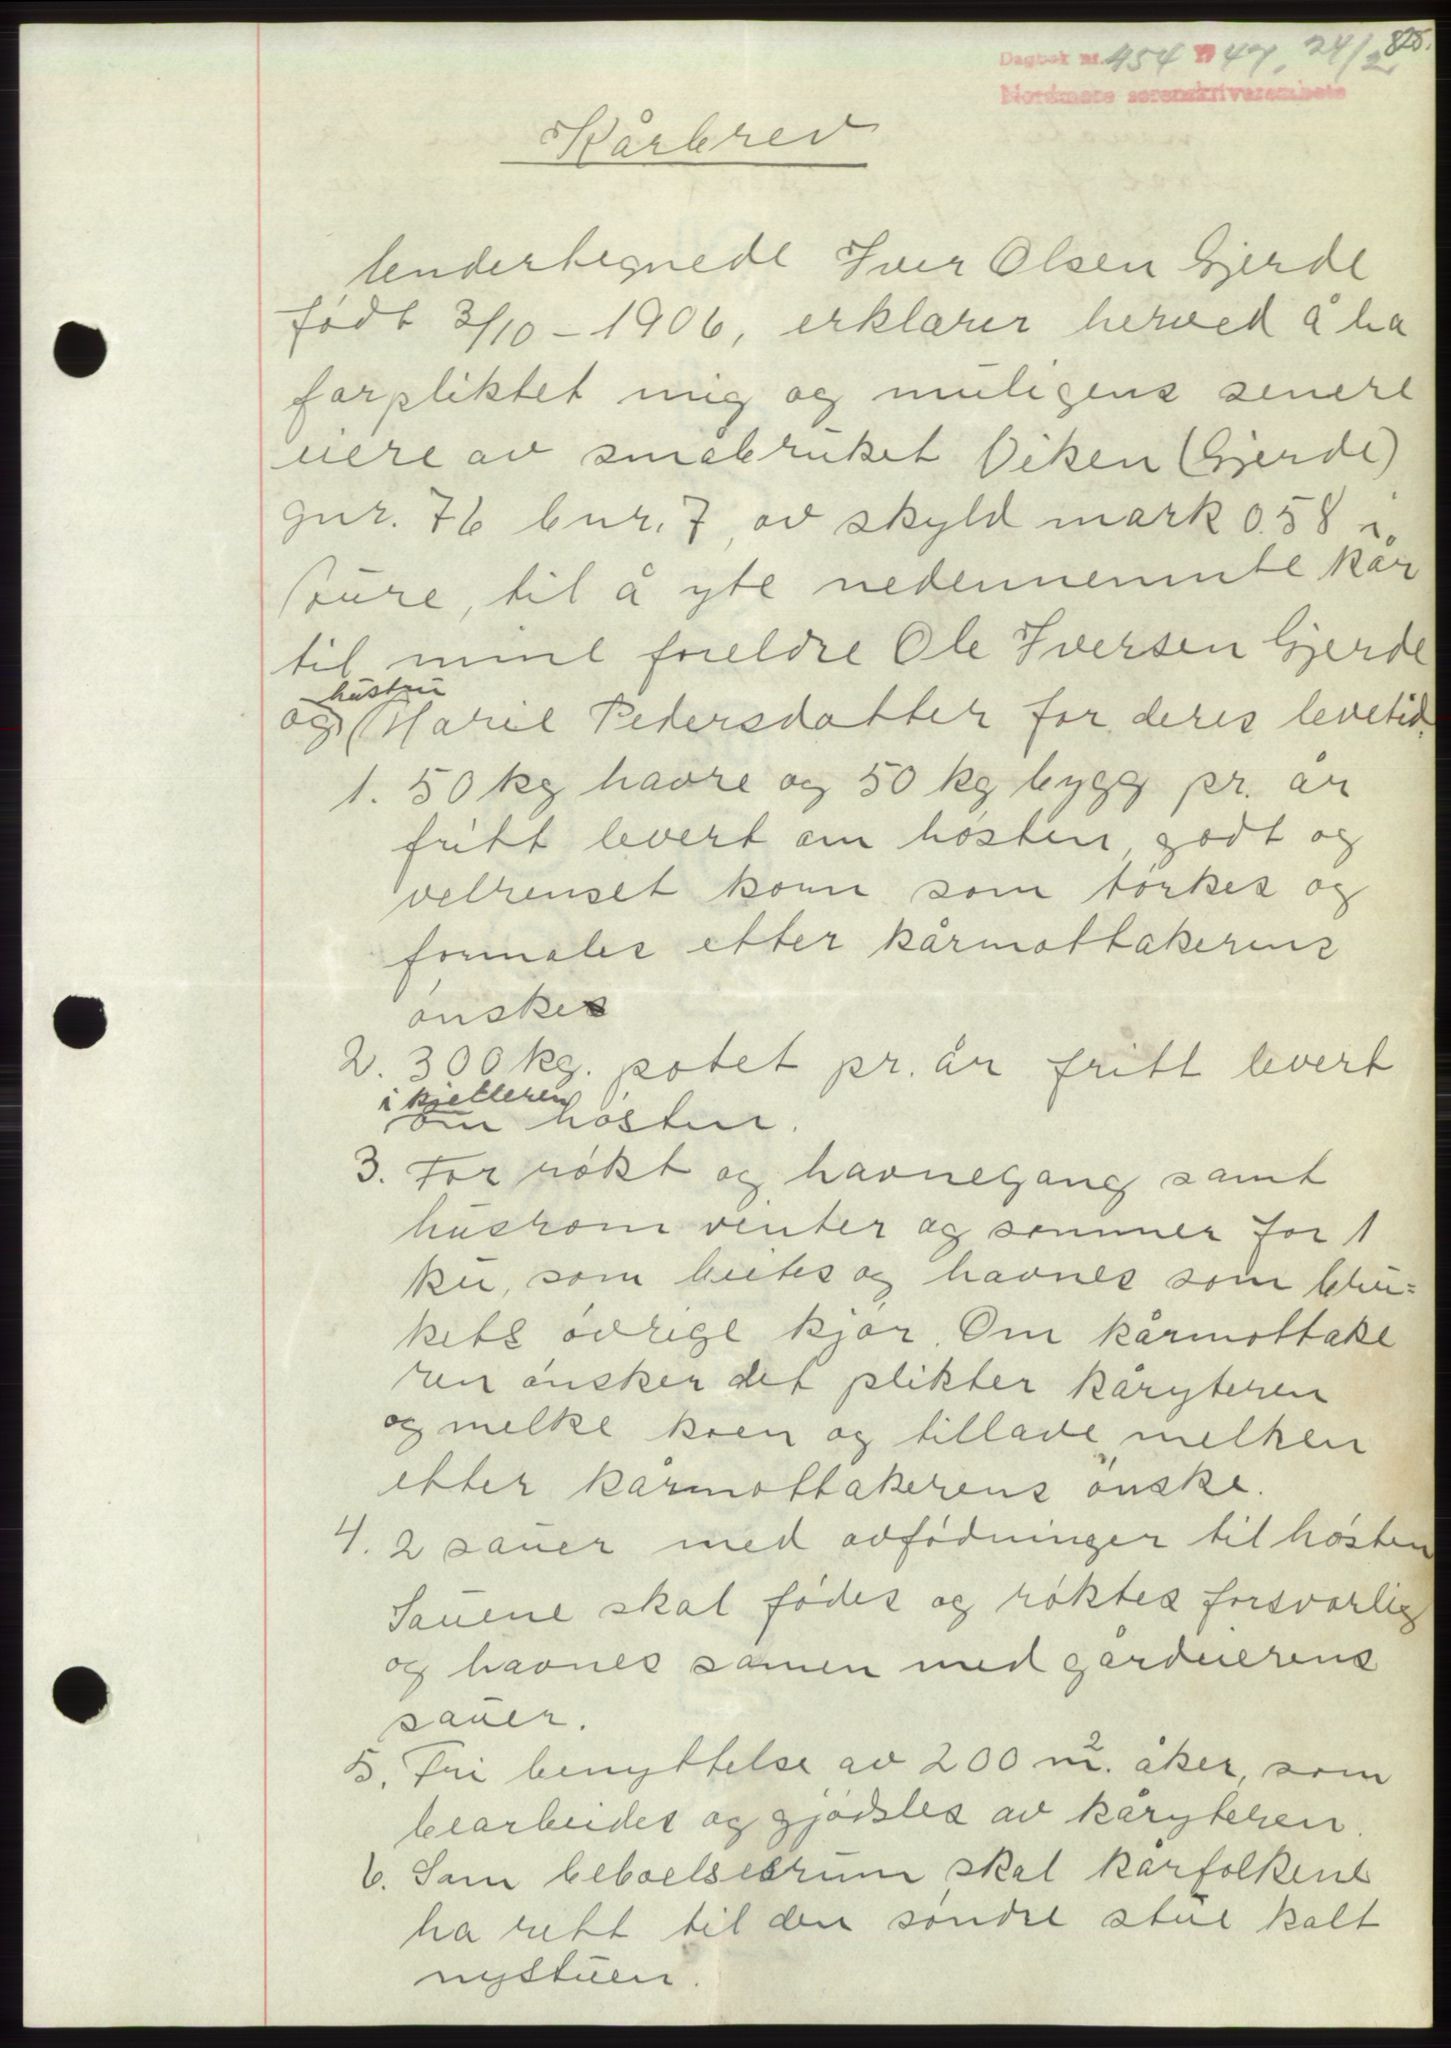 825.
Dagbok nr. 454 1947, 24/2
Nordmøre sorenskriverembete
Kårbrev
Undertegnede Iver Olsen Gjerde
født 3/10 - 1906, erklærer herved å ha
forpliktet mig og muligens senere
eiere av småbruket Viken (Gjerde)
gnr. 76 bnr. 7, av skyld mark 0.58 i
Aure, til å yte nedennemnte kår
til mine foreldre Ole Iversen Gjerde
hustru
og (Marie Pedersdatter for deres levetid.
1. 50 kg havre og 50 kg bygg pr. år
fritt levert om høsten, godt og
velrenset korn som tørkes og
formales etter kårmottakerens
ønske
2. 300 kg. potet pr. år fritt levert
i kjelleren
om høsten.
3. For røkt og havnegang samt
husrom vinter og sommer for 1
ku, som beites og havnes som bru=
kets øvrige kjør. Om kårmottake
ren ønsker det plikter kåryteren
og melke koen og tillave melken
etter kårmottakerens ønske.
4. 2 sauer med avfødninger til høsten
Sauene skal fødes og røktes forsvarlig
og havnes samen med gårdeierens
sauer.
5. Fri benyttelse av 200 m². åker, som
bearbeides og gjødsles av kåryteren.
6. Som beboelsesrum skal kårfolkene
ha rett til den søndre stue kalt
nystuen.